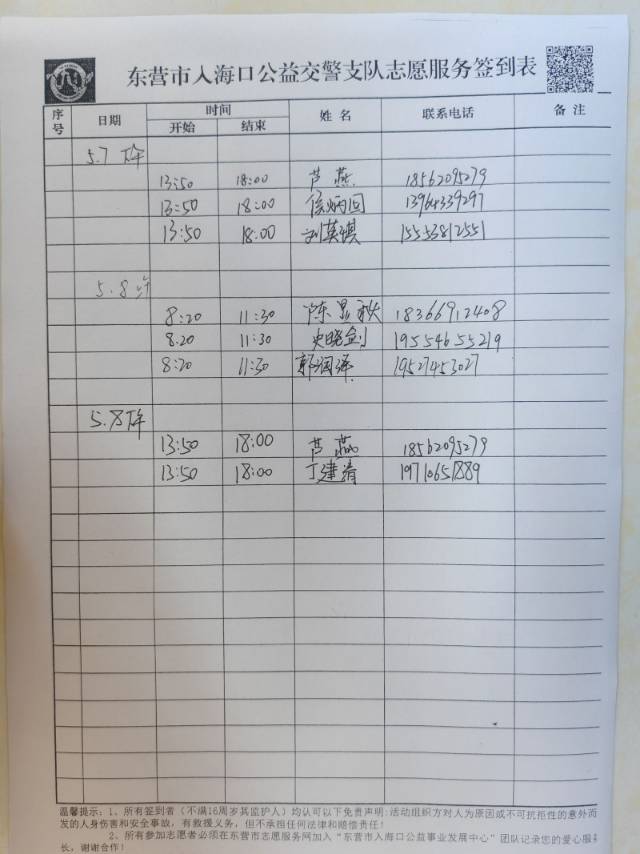 东营市入海口公益交警支队志愿服务签到表
序号 日期 时间 姓名 联系电话 备注
开始 结束
5.7下午
13:50 18:00 芦燕 18562095279
13:50 18:00 徐炳回 13964339297
13:50 18:00 刘英祺 15553812551
5.8上午
8:20 11:30 陈显秋 18366912408
8:20 11:30 史晓剑 19554655219
8:20 11:30 郭润泽 19527453027
5.8下午
13:50 18:00 芦燕 18562095279
13:50 18:00 丁建清 19710651889
温馨提示：1、所有签到者（不满16周岁其监护人）均认可以下免责声明:活动组织方对人为原因或不可抗拒性的意外而
发的人身伤害和安全事故，有救援义务，但不承担任何法律和赔偿责任！
2、所有参加志愿者必须在东营市志愿服务网加入“东营市入海口公益事业发展中心”团队记录您的爱心服
长，谢谢合作！